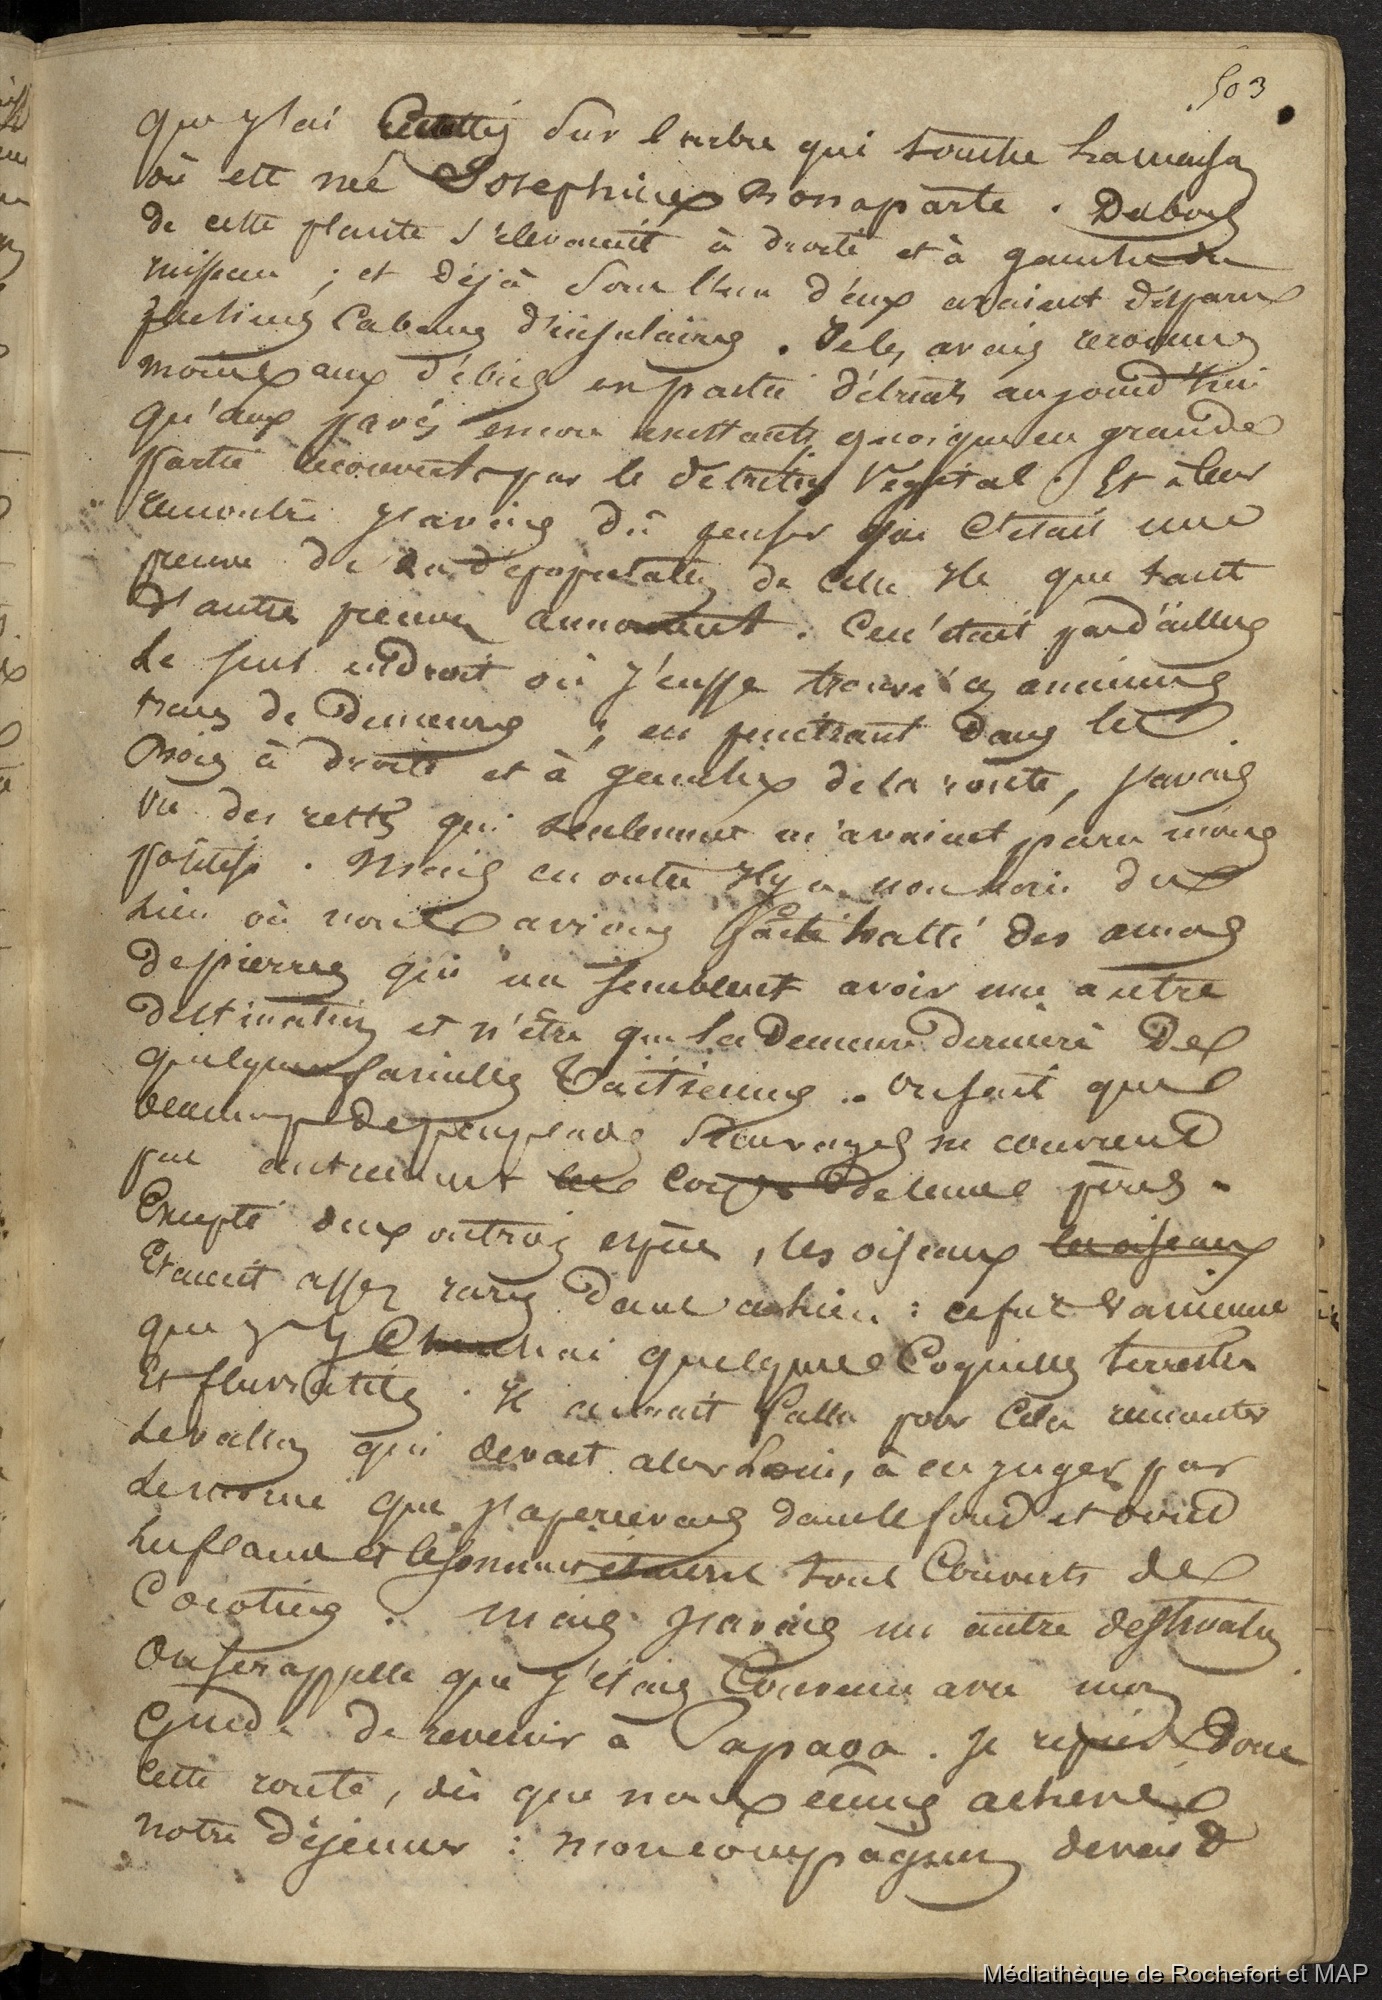 503
que j'ai sur l'arbre qui touche la maison
où est née Josephine Bonaparte. Dubois
de cette plante s'elevaient à droite et à gauche du
ruisseau ; et déjà sous l'un d'eux avaient disparu
plusieurs cabanes d'insulaires. Je les avais reconnues
moins aux débris en partie détruits aujourd'hui
qu'aux pavés encore existants quoique en grande
partie recouverts par le detritus végétal. Et à leur
rencontre j'avais dû penser que c'etait une
preuve de la dépopulation de cette île que tant
d'autres preuves annoncent. Ce n'était pas d'ailleurs
le seul endroit où j'eusse trouvé ces anciennes
traces de demeures ; en penétrant dans les
Bois à droite et à gauche de la route, j'avais
vu des restes qui seulement m'avaient paru moins
positifs. Mais en outre il y a non loin du
lieu où nous avions fait halte des amas
de pierres qui me semblent avoir une autre
destination et n'être que la Demeure dernière de
quelques familles Taïtiennes. On sait que
beaucoup de peuplades sauvages ne couvrent
pas autrement les corps de leurs pères.
Excepté deux ou trois espèces, les oiseaux les oiseaux
étaient assez rares dans ce lieu : ce fut vainement
que j'y cherchai quelques Coquilles terrestres
et fluviatiles. Il aurait fallu pour cela remonter
le vallon qui devait aller loin, à en juger par
le morne que j'apercevais dans le fond et dont
les flancs et les sommets étaient tous couverts de
Cocotiers. Mais j'avais une autre destination
On se rappelle que j'étais convenu avec mon
Guide de revenir à Papaoa. Je repris donc
cette route, dès que nous eûmes achevé
notre déjeuner : mon compagnon devait
Médiathèque de Rochefort et MAP